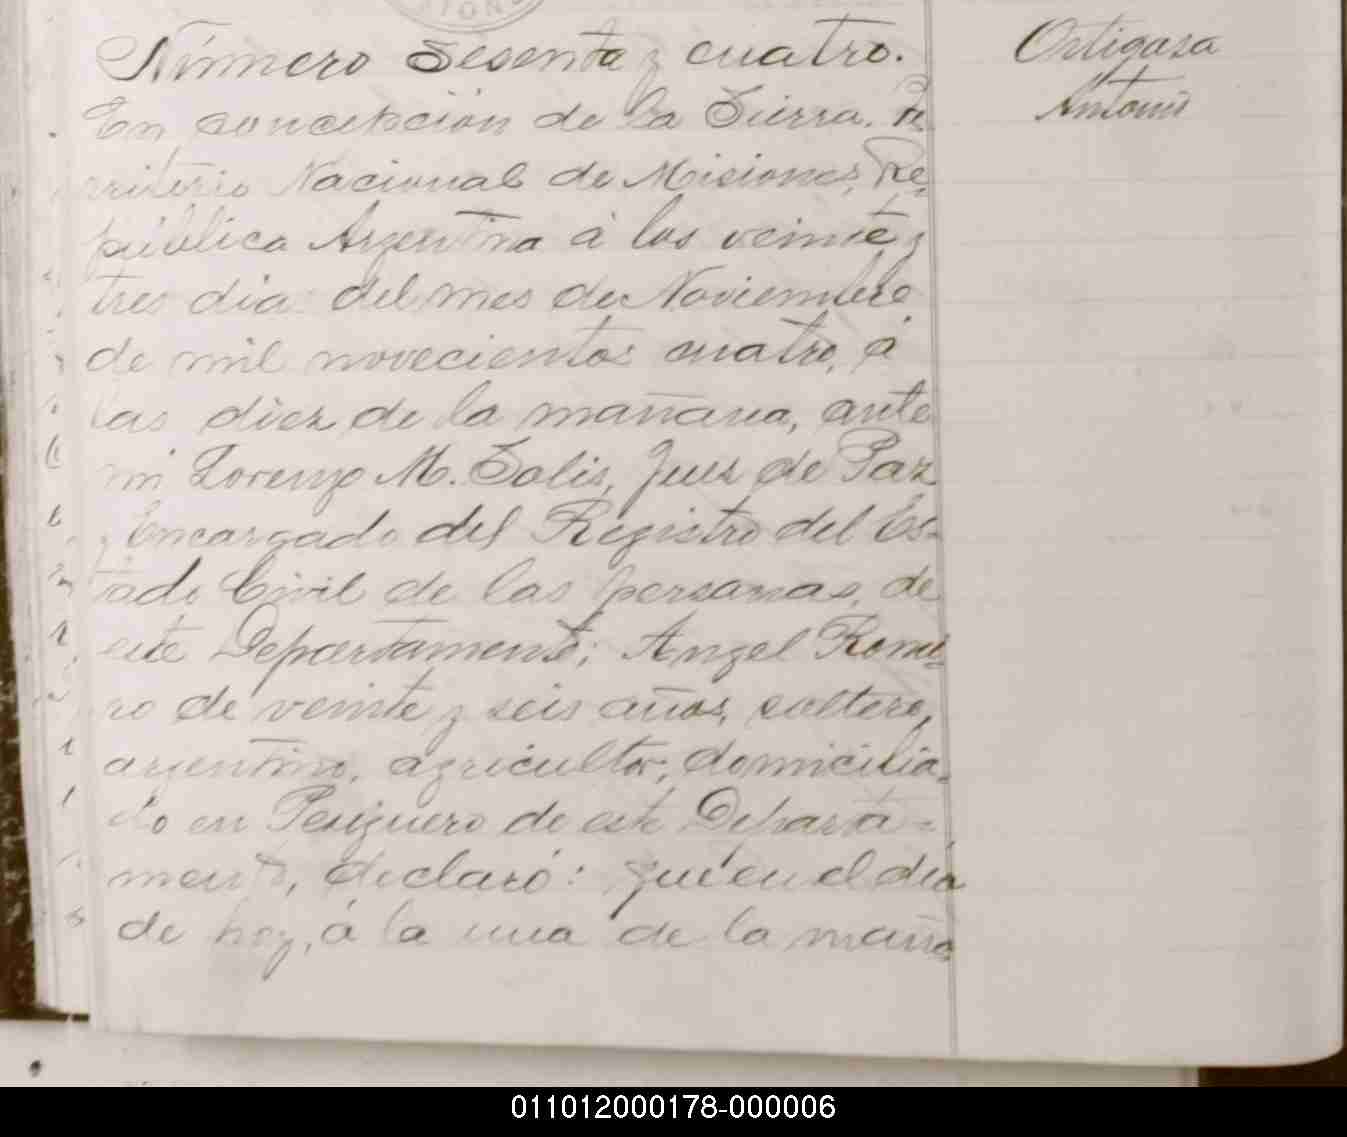 Número Sesenta y cuatro.
En concepción de la Sierra. Te
rriterio Nacional de Misiones, Re-
pública Argentina á los veinte y
tres dia del mes de Noviembre
de mil novecientos cuatro, á
las diez de la mañana, ante
mi Lorenzo M. Solis, Juez de Paz
y Encargado del Registro del Es-
tado Civil de las personas, de
este Departamento; Angel Rome-
ro de veinte y seis años, soltero,
argentino, agricultor, domicilia-
do en Persiguero de este Departa-
mento, declaró: que en el dia
de hoy, á la una de la maña
Ortigasa
Antonio
011012000178-000006